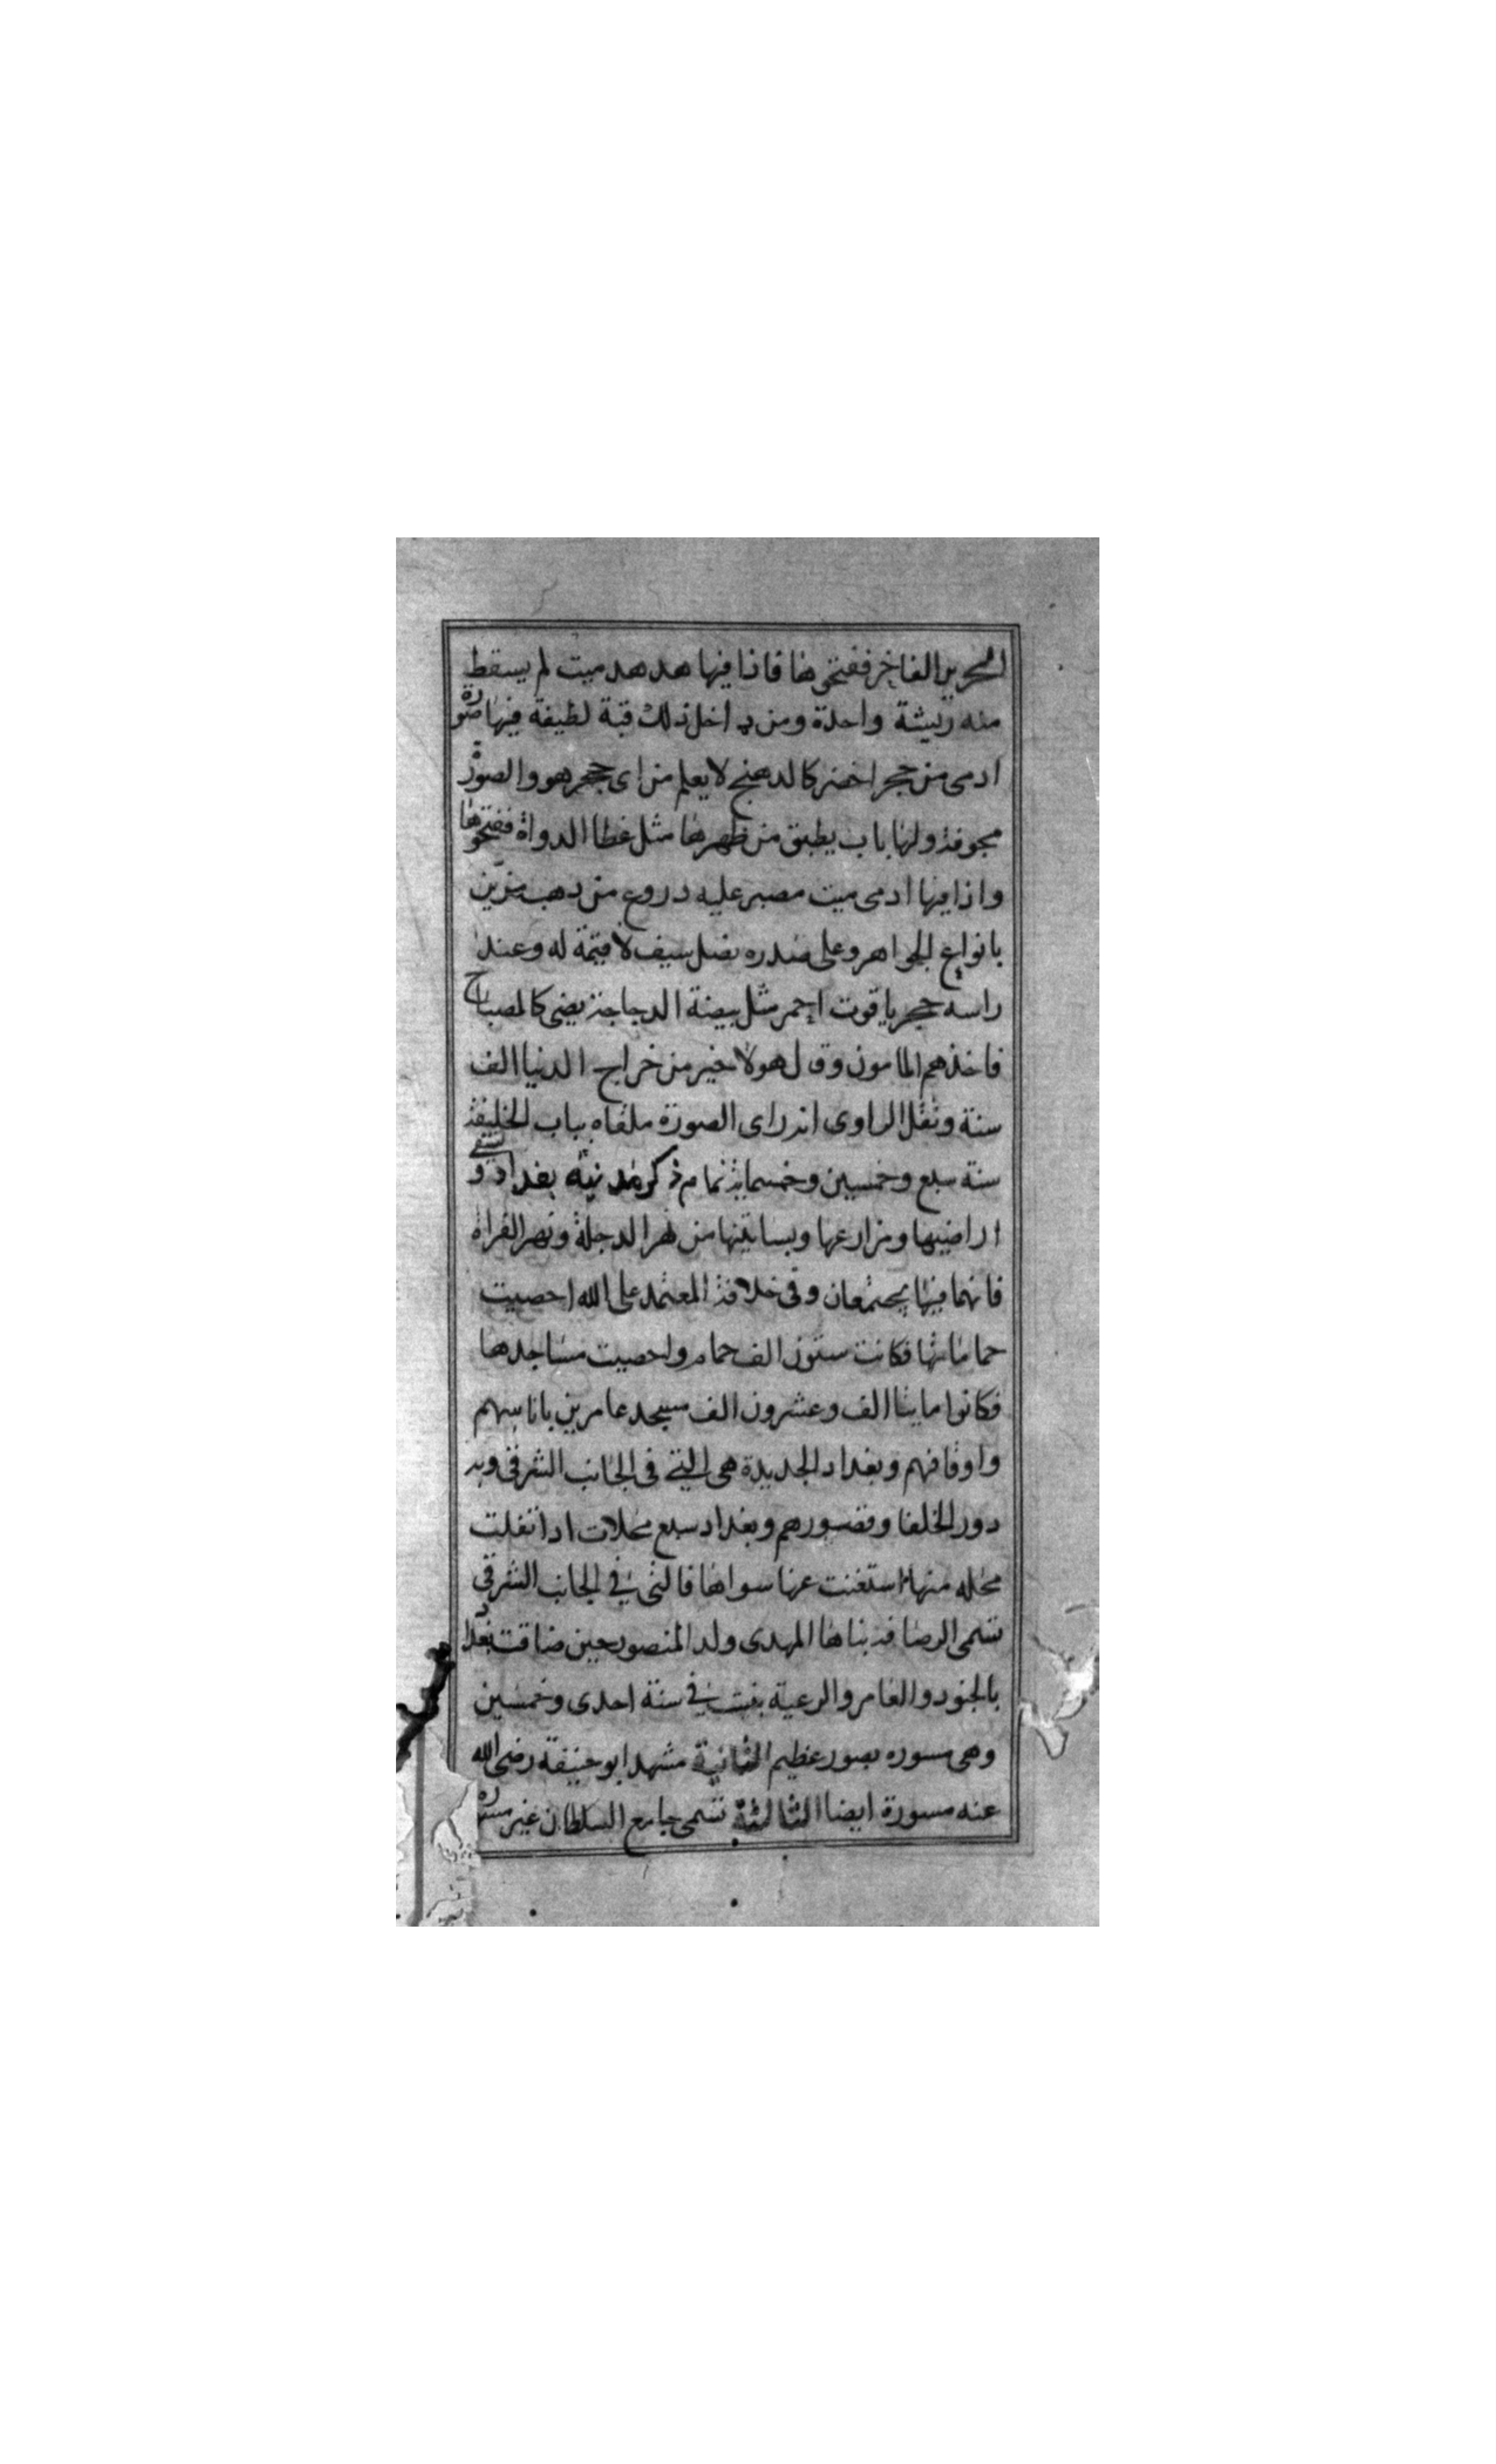 الحرير الفاخر ففتحوها فاذا فيها هدهد ميت لم يسقط
منه ريشة واحدة ومن داخل ذلك قبة لطيفة فيها صورة
ادمى من حجر اخضر كالدهنج لا يعلم من اى حجر هو والصورة
مجوفة ولها باب يطبق من ظهرها مثل غطا الدواة ففتحوها
واذا فيها ادمى ميت مصبر عليه دروع من دهب مزين
بانواع الجواهر وعلى صدره نصل سيف لا قيمة له وعند
راسه حجر ياقوت احمر مثل بيضة الدجاجة يضى كالمصباح
فاخذهم المامون وقال هولا خير من خراج الدنيا الف
سنة ونقل الراوى انه راى الصورة ملقاه بباب الخليفة
سنة سبع وخمسين وخمسماية تمام ذكر مدنية بغداد وتسقى
اراضيها ومزارعها وبساتينها من نهر الدجلة ونهر الفراة
فانهما فيها يجتمعان وفى خلافة المعتمد على الله احصيت
حماماتها فكانت ستون الف حمام واحصيت مساجدها
فكانوا مايتا الف وعشرون الف مسجد عامرين باناسهم
واوقافهم وبغداد الجديدة هى التى فى الجانب الشرقى وبه
دور الخلفا وقصورهم وبغداد سبع محلات ادا نقلت
محله منها استغنت عنها سواها فالتى فى الجانب الشرقى
تسمى الرصافة بناها المهدى ولد المنصور حين ضاقت بغداد
بالجنود والعامر والرعية بنيت فى سنة احدى وخمسين
وهى مسوره بصور عظيم الثانية مشهد ابو حنيفة رضى الله
عنه مسورة ايضا الثالثة تسمى جامع السلطان غير مسوره